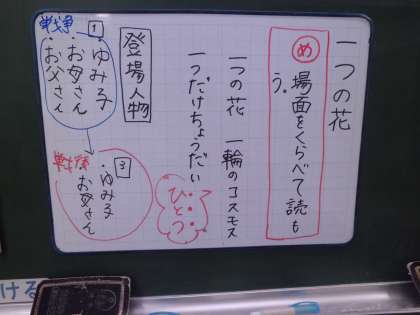 一つの花
め 場面をくらべて読も
う。
一つの花 一輪のコスモス
一つだけちょうだい
ひとつ
登場人物
戦争
1
・ゆみ子
・お母さん
・お父さん
戦後
3
・ゆみ子
お母さん
ける